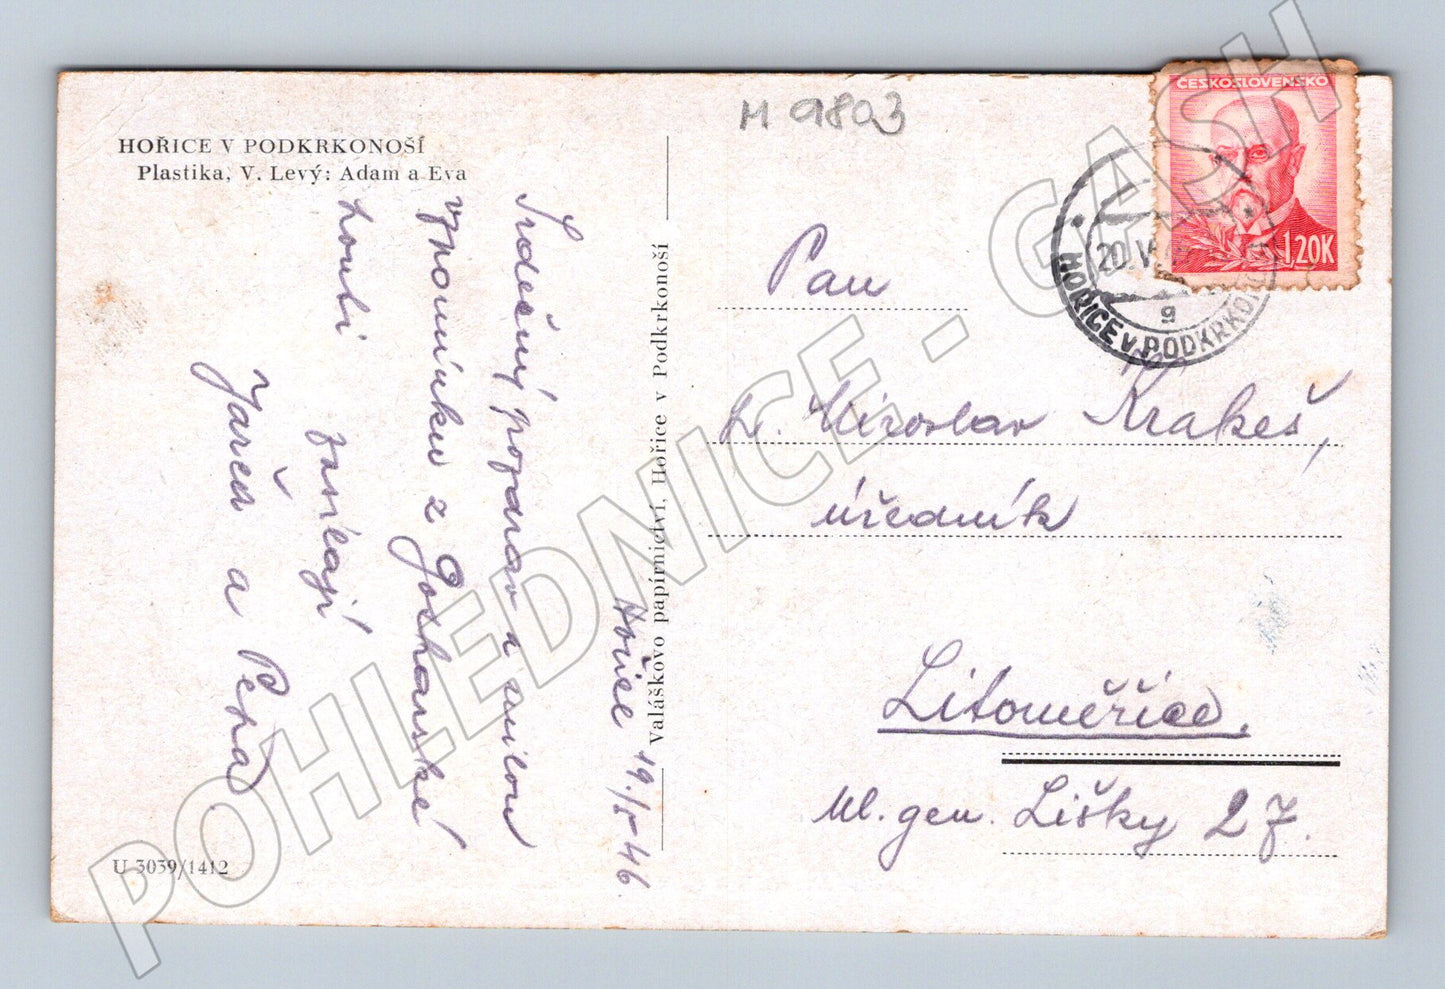 HOŘICE V PODKRKONOŠÍ
Plastika, V. Levý: Adam a Eva
M 9803
ČESKOSLOVENSKO
1,20K
20. V
HOŘICE V PODKRKONO
g
Hořice 19./5 46
Srdečný pozdrav a milou
vzpomínku z Gothardské
louti
zasílají
Jarča a Péťa
Valáškovo papírnictví, Hořice v Podkrkonoší
Pan
Miroslav Krakeš,
úředník
Litoměřice,
Ul. gen. Lišky 27.
U 3039/1412
POHLEDNICE - GASH